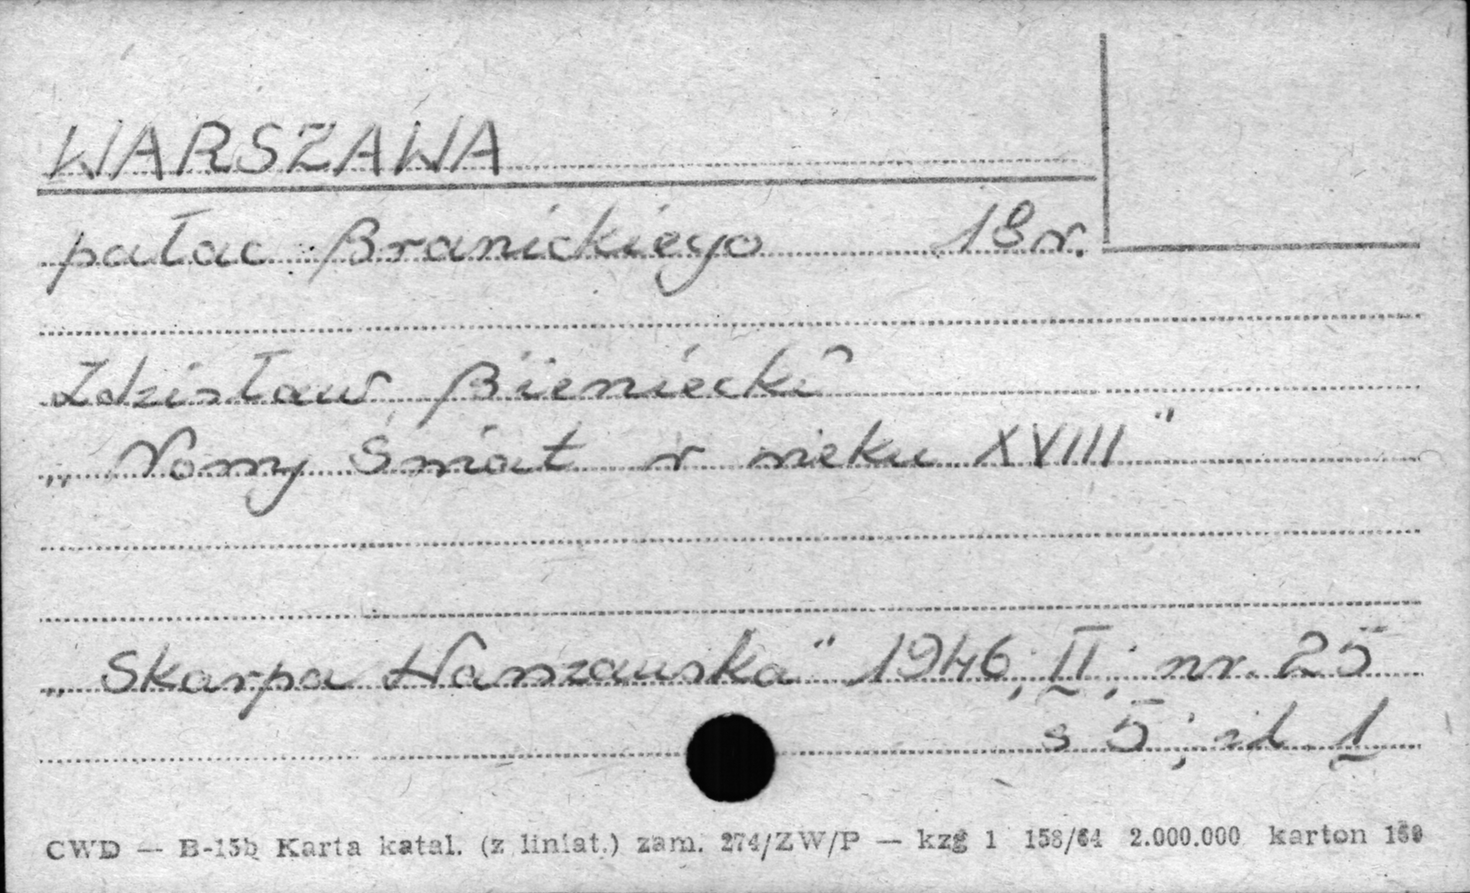 WARSZAWA
pałac Branickiego 18 w.
Zdzisław Bieniecki
„Nowy Świat w wieku XVIII"
„Skarpa Warszawska" 1946; II; nr. 25
s 5; il. 1
CWD — B-15b Karta katal. (z liniat.) zam. 274/ZW/P — kzg 1 158/64 2.000.000 karton